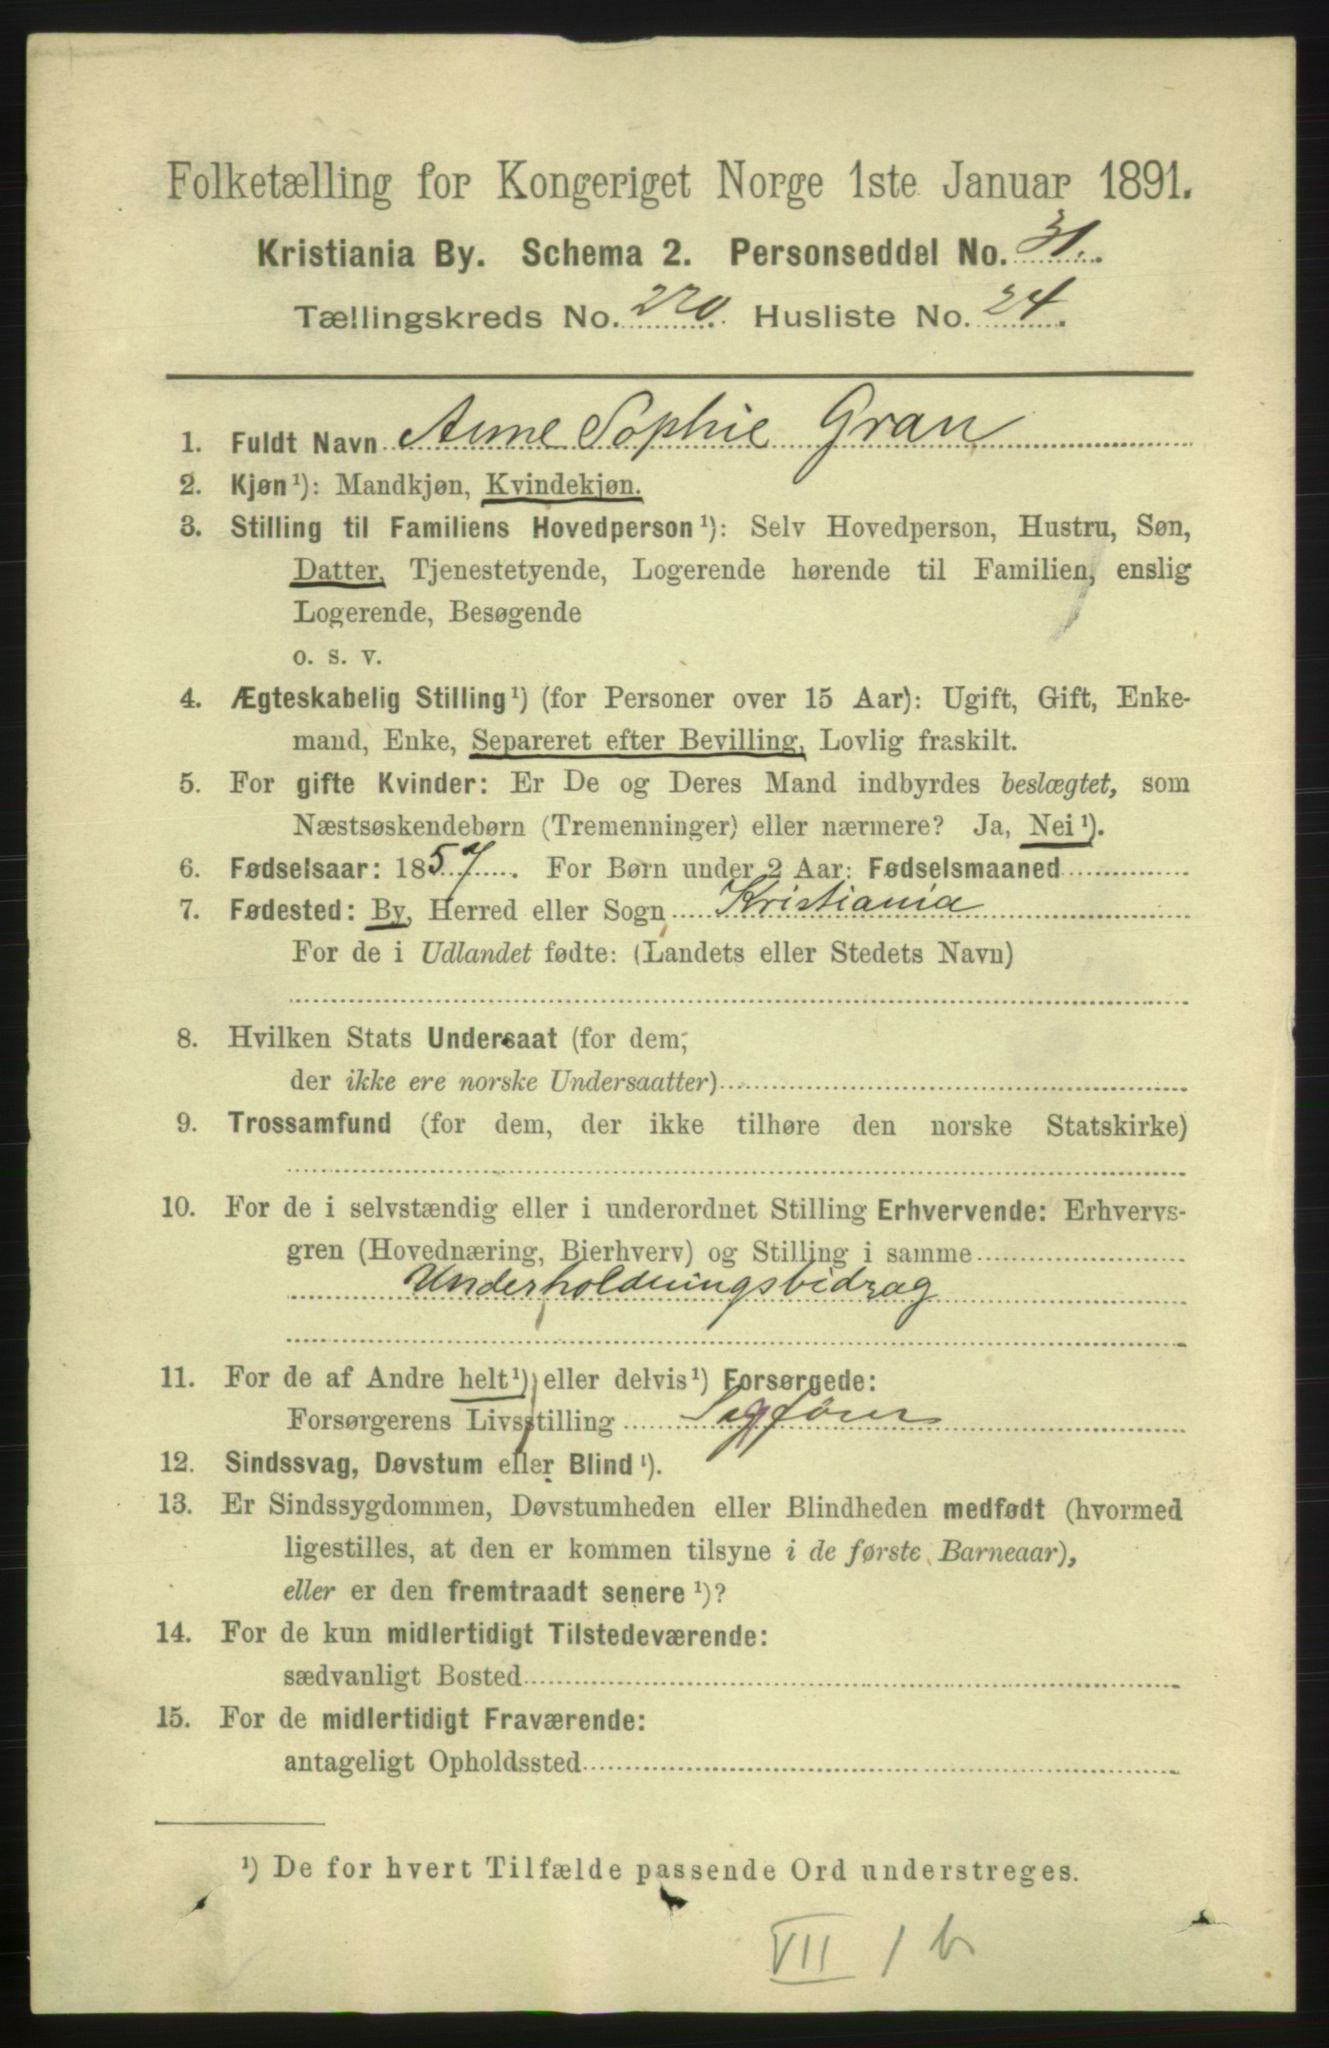 Folketælling for Kongeriget Norge 1ste Januar 1891.
Kristiania By. Schema 2. Personseddel No. 31.
Tællingskreds No. 220. Husliste No. 24.
1. Fuldt Navn Anne Sophie Gran
2. Kjøn¹): Mandkjøn, Kvindekjøn.
3. Stilling til Familiens Hovedperson¹): Selv Hovedperson, Hustru, Søn,
Datter, Tjenestetyende, Logerende hørende til Familien, enslig
Logerende, Besøgende
o. s. v.
4. Ægteskabelig Stilling¹) (for Personer over 15 Aar): Ugift, Gift, Enke-
mand, Enke, Separeret efter Bevilling, Lovlig fraskilt.
5. For gifte Kvinder: Er De og Deres Mand indbyrdes beslægtet, som
Næstsøskendebørn (Tremenninger) eller nærmere? Ja, Nei¹).
6. Fødselsaar: 1857. For Børn under 2 Aar: Fødselsmaaned
7. Fødested: By, Herred eller Sogn Kristiania
For de i Udlandet fødte: (Landets eller Stedets Navn)
8. Hvilken Stats Undersaat (for dem,
der ikke ere norske Undersaatter)
9. Trossamfund (for dem, der ikke tilhøre den norske Statskirke)
10. For de i selvstændig eller i underordnet Stilling Erhvervende: Erhvervs-
gren (Hovednæring, Bierhverv) og Stilling i samme
Underholdningsbidrag
11. For de af Andre helt¹) eller delvis¹) Forsørgede:
Forsørgerens Livsstilling
12. Sindssvag, Døvstum eller Blind¹).
13. Er Sindssygdommen, Døvstumheden eller Blindheden medfødt (hvormed
ligestilles, at den er kommen tilsyne i de første Barneaar),
eller er den fremtraadt senere¹)?
14. For de kun midlertidigt Tilstedeværende:
sædvanligt Bosted
15. For de midlertidigt Fraværende:
antageligt Opholdssted
¹) De for hvert Tilfælde passende Ord understreges.
VII 1 b